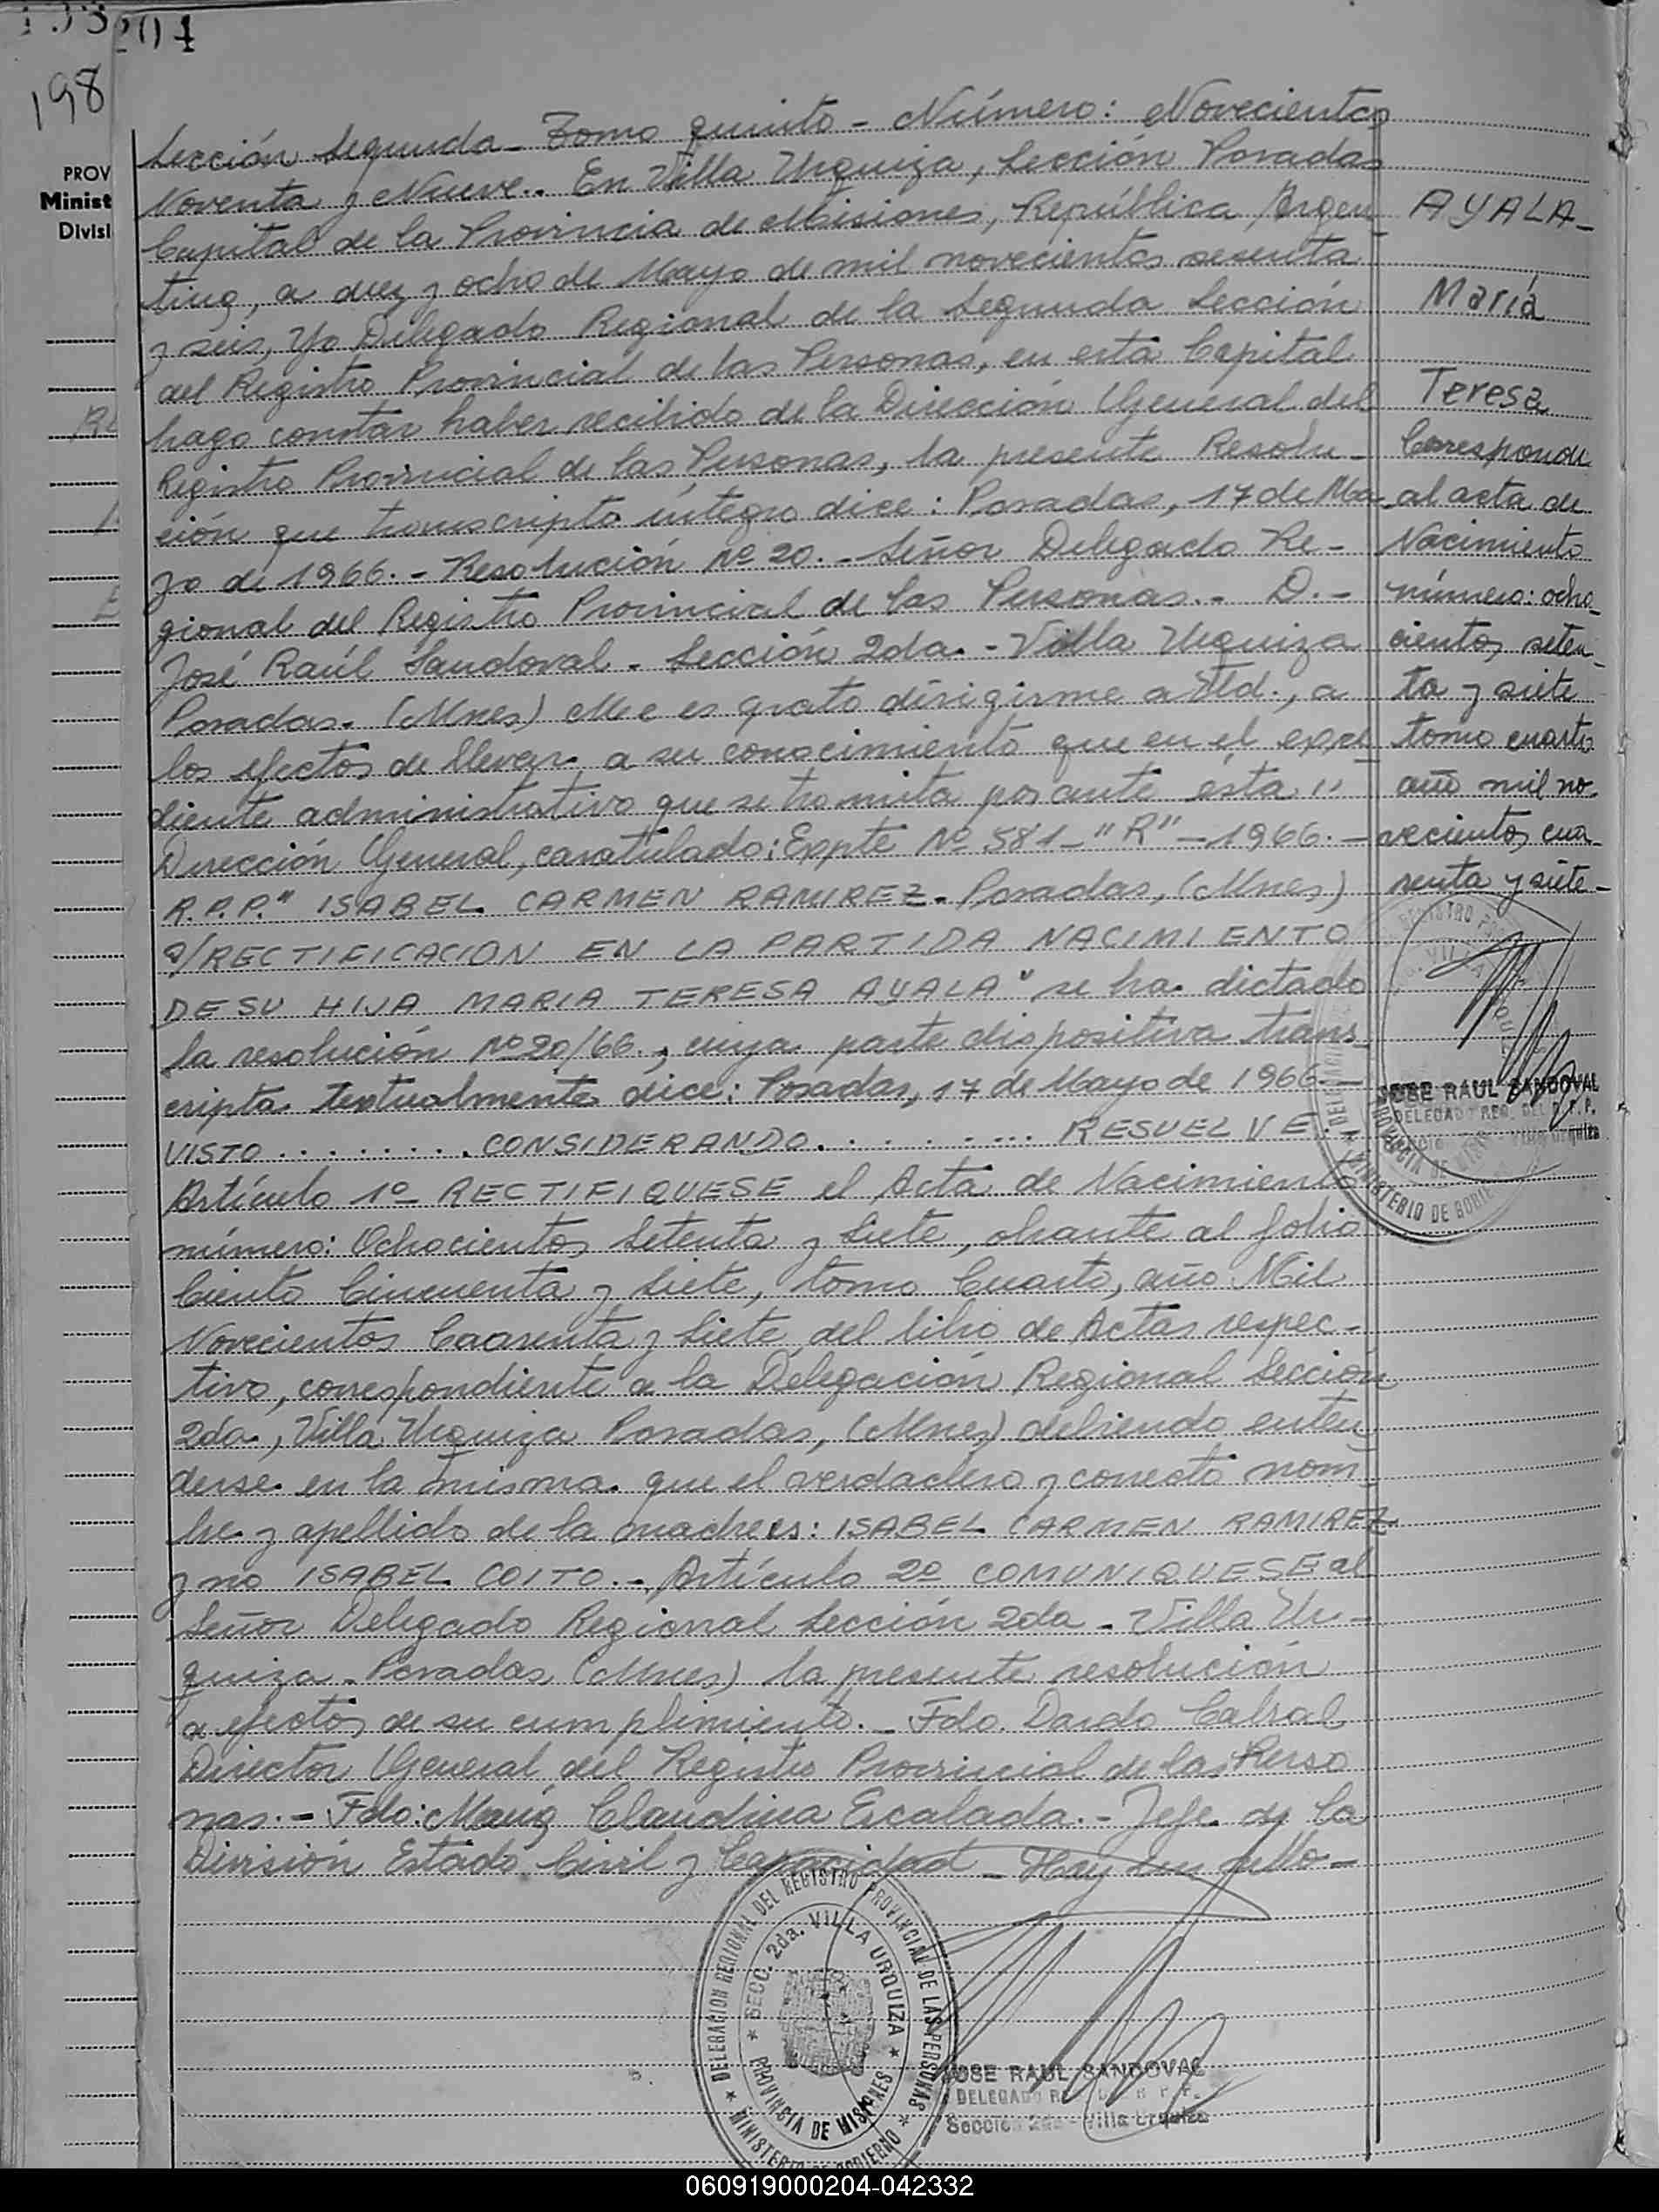 204
198
PROV
Minist
Divisi
Sección Segunda - Tomo quinto - Número: Novecientos
Noventa y Nueve.. En Villa Urquiza, Sección Posadas
Capital de la Provincia de Misiones, República Argen-
tina, a diez y ocho de Mayo de mil novecientos sesenta
y seis, Yo Delegado Regional de la Segunda Sección
del Registro Provincial de las Personas, en esta Capital
hago constar haber recibido de la Dirección General del
Registro Provincial de las Personas, la presente Resolu-
ción que transcripto íntegro dice: Posadas, 17 de Ma-
yo de 1966. - Resolución Nº 20. - Señor Delegado Re-
gional del Registro Provincial de las Personas. - D. -
José Raúl Sandoval - Sección 2da. - Villa Urquiza
Posadas. (Mnes) Me es grato dirigirme a Ud., a
los efectos de llevar a su conocimiento que en el expe
diente administrativo que se tramita por ante ésta "
Dirección General, caratulado: Expte Nº 581 - "R" - 1966. -
R.P.P." ISABEL CARMEN RAMIREZ. Posadas, (Mnes)
s/RECTIFICACION EN LA PARTIDA NACIMIENTO
DE SU HIJA MARIA TERESA AYALA" se ha dictado
la resolución Nº 20/66., cuya parte dispositiva trans-
cripta textualmente dice: Posadas, 17 de Mayo de 1966 -
VISTO ........ CONSIDERANDO ........ RESUELVE:
Artículo 1º RECTIFIQUESE el Acta de Nacimiento
número: Ochocientos Setenta y Siete, obrante al folio
Ciento Cincuenta y Siete, tomo Cuarto, año Mil
Novecientos Caarenta y Siete del libro de Actas respec-
tivo, correspondiente a la Delegación Regional Sección
2da, Villa Urquiza Posadas, (Mnes) debiendo enten
derse en la misma que el verdadero y correcto nom
bre y apellido de la madre es: ISABEL CARMEN RAMIREZ
y no ISABEL COITO. - Artículo 2º COMUNIQUESE al
Señor Delegado Regional Sección 2da - Villa Ur-
quiza - Posadas (Mnes) la presente resolución
a efectos de su cumplimiento. - Fdo. Dardo Cabral
Director General del Registro Provincial de las Perso
nas. - Fdo: María Claudina Escalada. - Jefe de la
División Estado Civil y Capacidad - Hay un sello -
AYALA -
María
Teresa
Corresponde
al acta de
Nacimiento
número: ocho-
cientos seten-
ta y siete
tomo cuarto
año mil no-
vecientos cua-
renta y siete -
JOSE RAUL SANDOVAL
DELEGADO REG. DEL R.P.P.
Villa Urquiza
DELEGACION REGIONAL DEL REGISTRO PROVINCIAL DE LAS PERSONAS
SECC. 2da. VILLA URQUIZA
PROVINCIA DE MISIONES
MINISTERIO DE GOBIERNO
JOSE RAUL SANDOVAL
DELEGADO
Sección 2da - Villa Urquiza
060919000204-042332